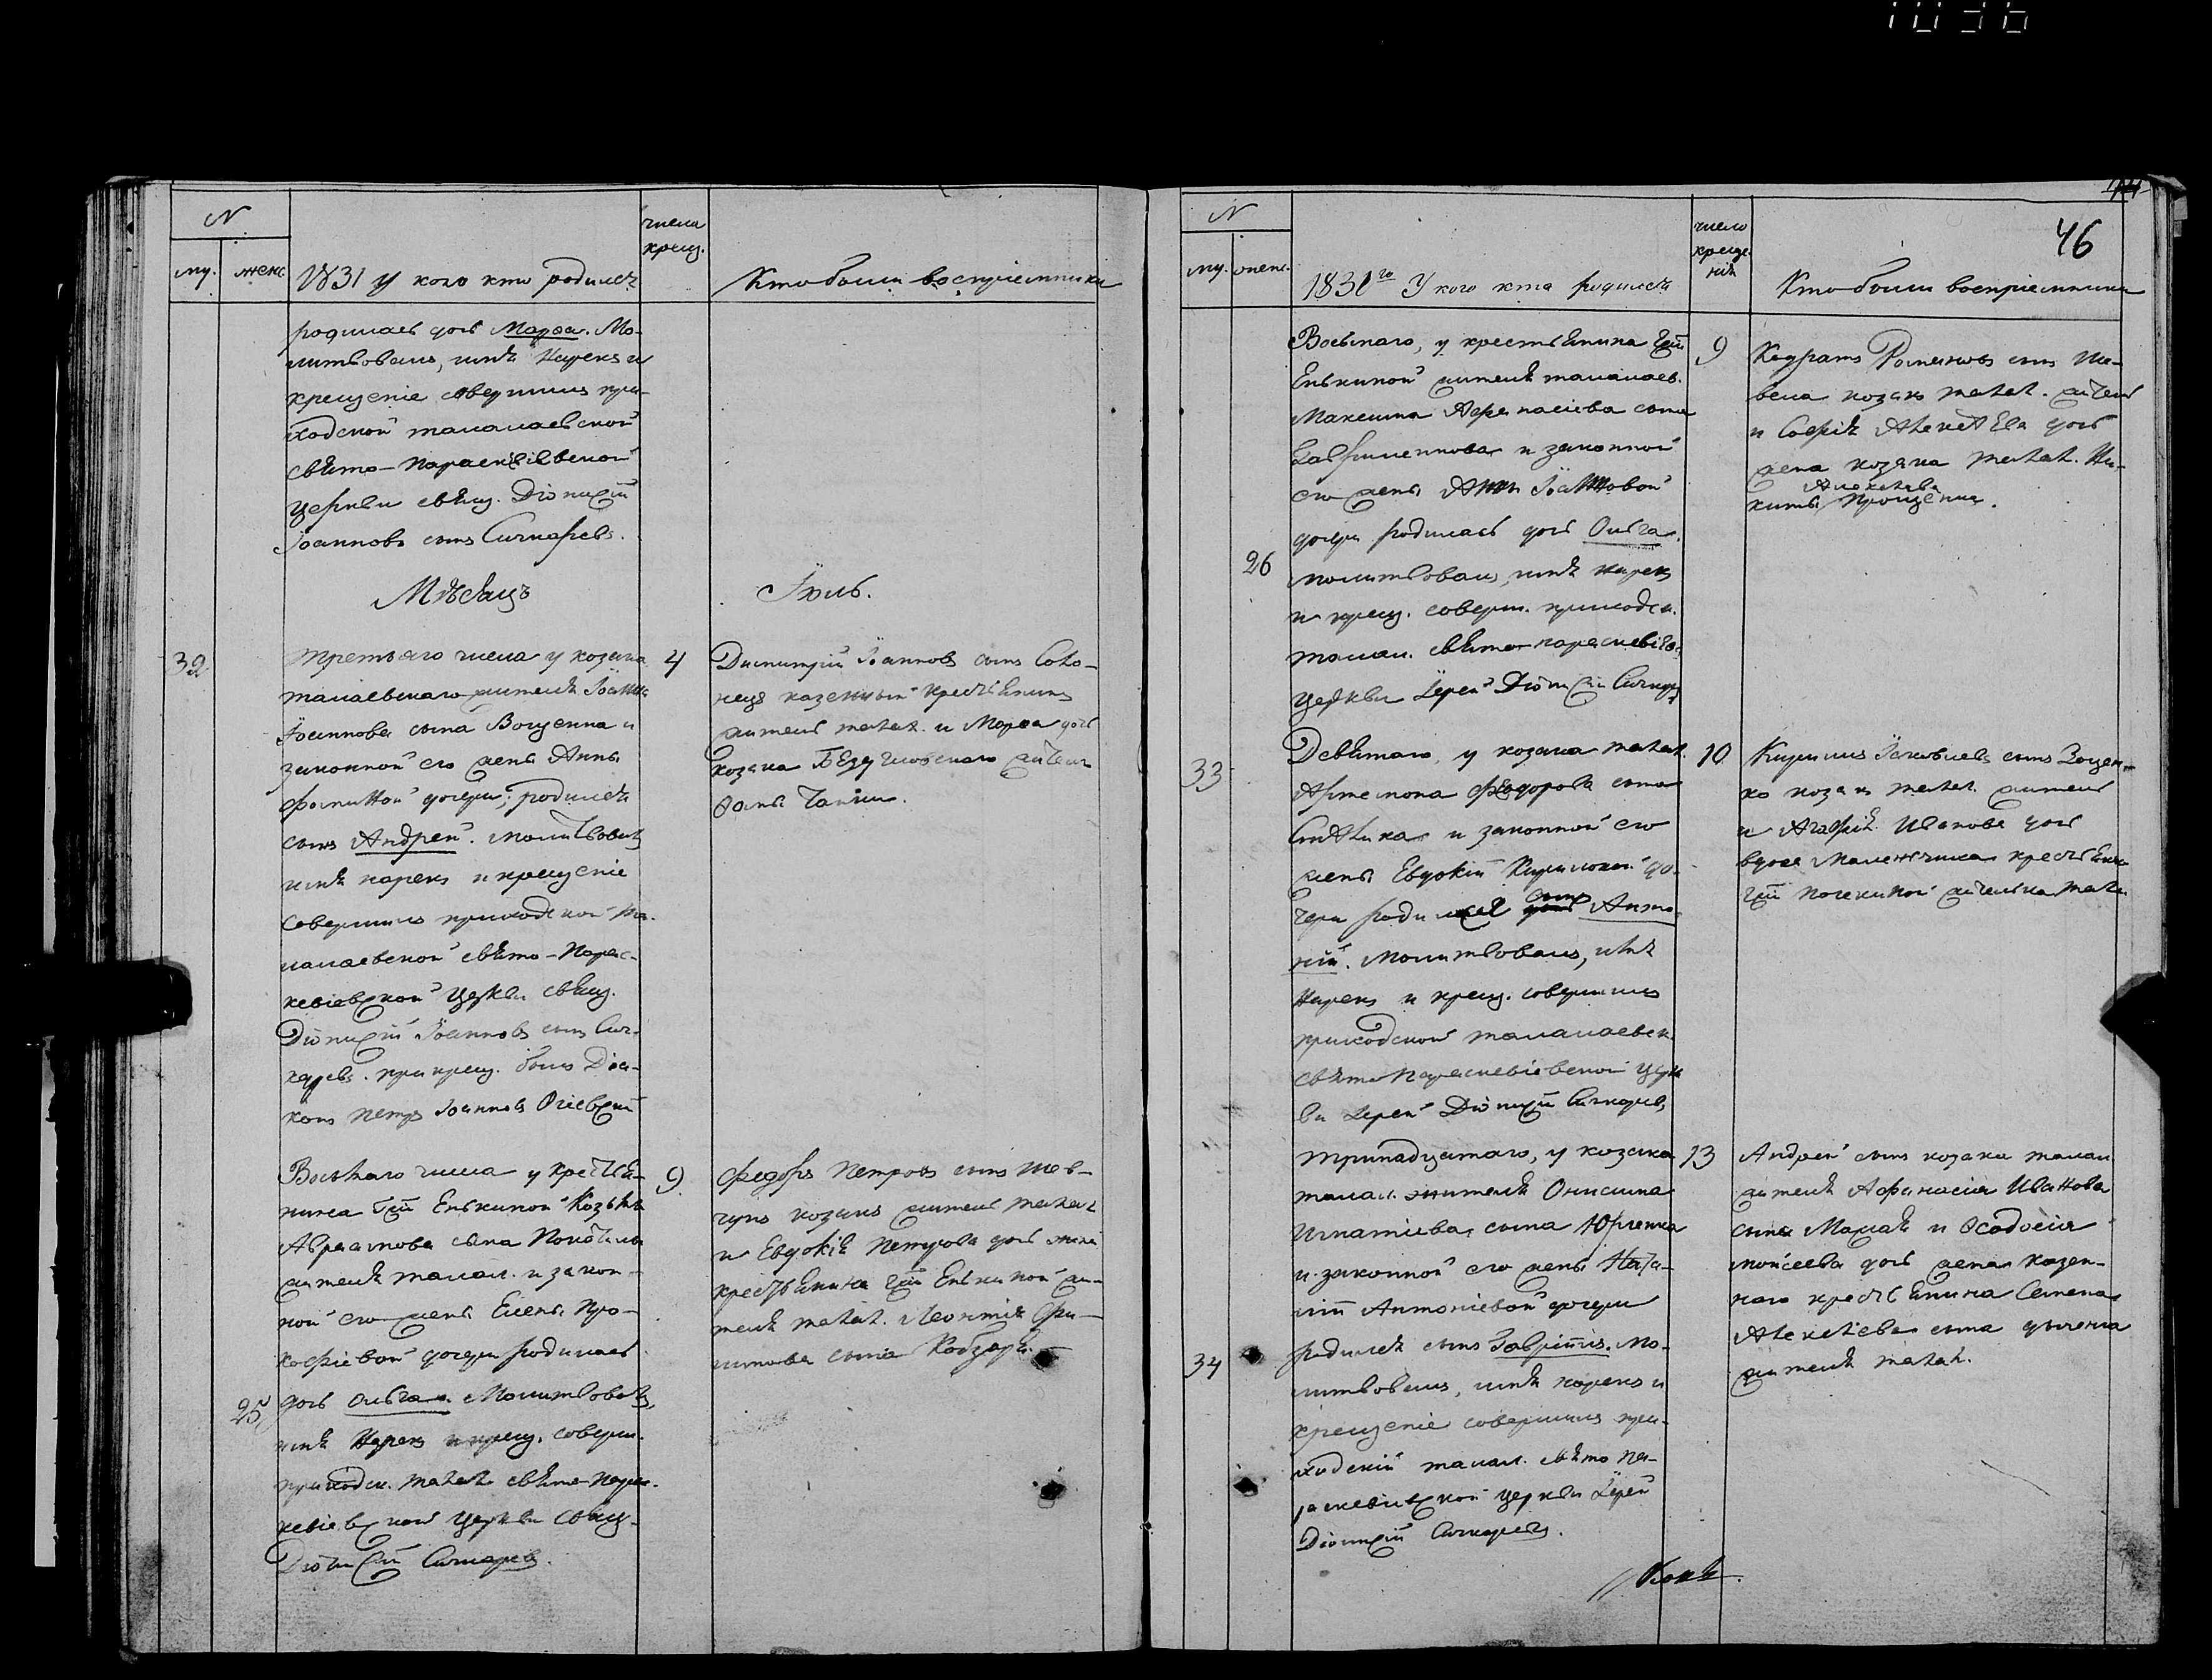 N
му.
женс.
1831 у кого кто родился
числа
крещ.
Кто были воспріемники
родилась дочь Марѳа. Мо-
литвовалъ, имя нарекъ и
крещеніе совершилъ при-
ходской талалаевской
свято-Параскѣвіевской
церкви свящ. Діонисій
Іоанновъ сынъ Сичкаревъ.
Мѣсяцъ
Іюль.
32
Третьяго числа у козака
талаевскаго жителя Іоанна
Іоаннова сына Вощенка и
законной его жены Анны
Фоминой дочери, родился
сынъ Андрей. Молитвовалъ
имя нарекъ и крещеніе
совершилъ приходской та-
лалаевской свято-Парас-
кевіевской церкви свящ.
Діонисій Іоанновъ сынъ Сич-
каревъ. при крещ. былъ Діа-
конъ Петръ Іоанновъ Огіевскій
4
Димитрій Іоанновъ сынъ Соло-
нецъ казенный крестьянинъ
житель талал. и Марѳа дочь
козака жителя
Ѳомы
Восьмаго числа у крестья-
нина Гжи Енькиной Козьмы
Авраамова сына
жителя талал. и закон-
ной его жены Елены Про-
кофіевой дочери родилась
25
дочь Ольга. Молитвовалъ,
имя нарекъ и крещ. соверш.
приходск. талал. свято-Парас-
кевіевской церкви свящ.
Діонисій Сичкаревъ.
9
Федоръ Петровъ сынъ Шев-
чунъ козакъ житель талал.
и Евдокія Петрова дочь жена
крестьянина Гжи Енькиной жи-
теля талал. Леонтія Фи-
липова сына Кобзаря.
46
N
му.
женс.
1831го У кого кто родился
число
креще-
нія
Кто были воспріемники
Восьмаго, у крестьянина Гжи
Енькиной жителя талалаев.
Максима Афанасіева сына
и законной
его жены Анны Іоанновой
дочери родилась дочь Ольга.
26
молитвовалъ, имя нарекъ
и крещ. соверш. приходск.
талал. свято-параскевіев.
церкви Іерей Діонисій Сичкар.
9
Кодратъ Романовъ сынъ
козакъ талал. житель
и Софія Алексѣева дочь
жена козака талал. Ни-
киты Алексѣева Прощенка.
33
Девятаго, у козака талал.
Артемона Феодорова сына
и законной его
жены Евдокіи Кириловой до-
чери родился сынъ Анто-
ній. Молитвовалъ, имя
нарекъ и крещ. совершилъ
приходской талалаевск.
свято Параскевіевской церк-
ви Іерей Діонисій Сичкаревъ
10
Кирилъ Іаковлевъ сынъ Воцен-
ко козакъ талал. житель
и Агафія Иванова дочь
вдова крестьян.
Гжи жителька талал.
34
Тринадцатаго, у козака
талал. жителя Онисима
Игнатіева сына Юрченка
и законной его жены Ната-
ліи Антоніевой дочери
родился сынъ Гавріилъ. Мо-
литвовалъ, имя нарекъ и
крещеніе совершилъ при-
ходскій талал. свято Па-
раскевіевской церкви Іерей
Діонисій Сичкаревъ.
13
Андрей сынъ козака талал.
жителя Афанасія Иванова
сына и Ѳеодосія
Моисеева дочь жена казен-
наго крестьянина Семена
Алексѣева сына
жителя талал.